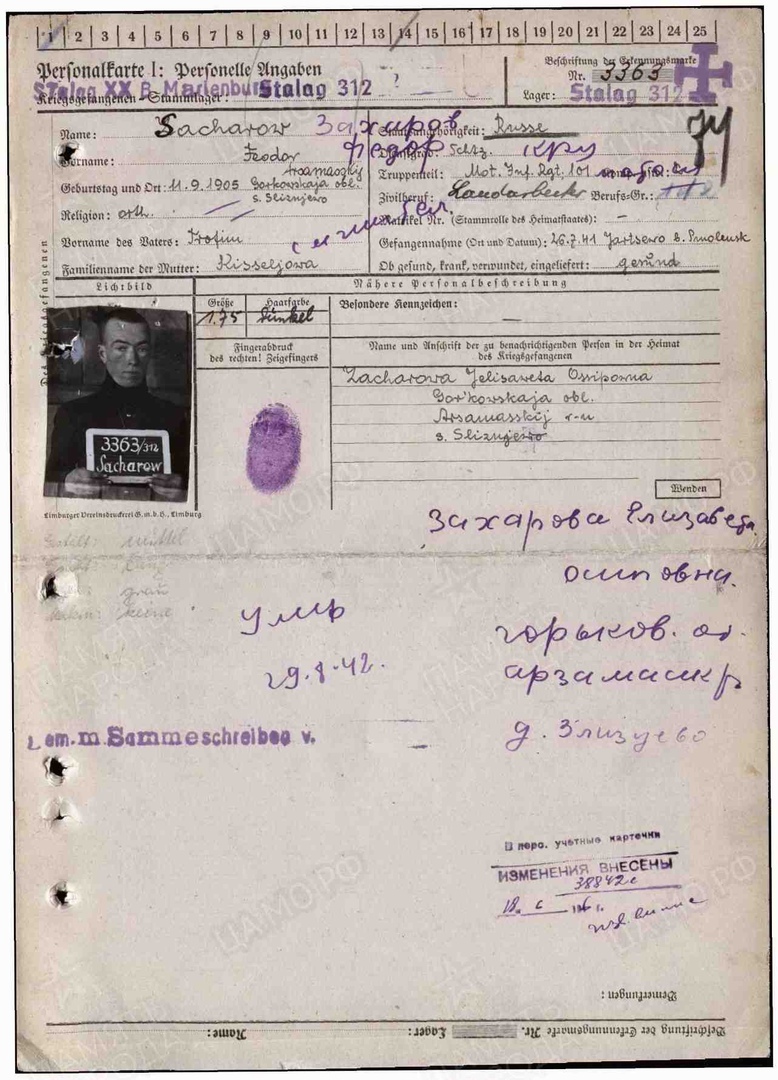 1 2 3 4 5 6 7 8 9 10 11 12 13 14 15 16 17 18 19 20 21 22 23 24 25
Personalkarte I: Personelle Angaben
Stalag XX B Marienburg Stalag 312 ?
Kriegsgefangenen-Stammlager:
Beschriftung der Erkennungsmarke
Nr. 3363
Lager: Stalag 312
Des Kriegsgefangenen
Name: Sacharow Захаров
Staatsangehörigkeit: Russe
Vorname: Feodor Федор
Dienstgrad: Schtz. кр
Arsamasskij
Truppenteil: Mot. Inf. Rgt. 101
Geburtstag und Ort: 11.9.1905 Gorkowskaja obl.
s. Slisnjewo
Zivilberuf: Landarbeiter Berufs-Gr.:
Religion: orth.
Matrikel Nr. (Stammrolle des Heimatstaates): –
Vorname des Vaters: Trofim
Gefangennahme (Ort und Datum): 26.7.41 Jartsewo b. Smolensk
Familienname der Mutter: Kisseljowa
Ob gesund, krank, verwundet, eingeliefert: gesund
Lichtbild
Nähere Personalbeschreibung
Größe Haarfarbe
1.75 dunkel
Besondere Kennzeichen: —
Fingerabdruck
des rechten! Zeigefingers
Name und Anschrift der zu benachrichtigenden Person in der Heimat
des Kriegsgefangenen
Zacharowa Jelisaweta Ossipowna
Gor'kowskaja obl.
Arsamasskij r-n
s. Sliznjewo
3363/312
Sacharow
Wenden
Limburger Vereinsdruckerei G.m.b.H., Limburg
Захарова Елизавета
осиповна.
горьков. об.
арзамаскр
д. Злизуево
mittel
grau
keine
умр
29.8.42.
m. Sammeschreiben v.
В перс. учетные карточки
ИЗМЕНЕНИЯ ВНЕСЕНЫ
38842с
Bemerkungen:
Beschriftung der Erkennungsmarke Nr. Lager: Name:
ЦАМО.РФ